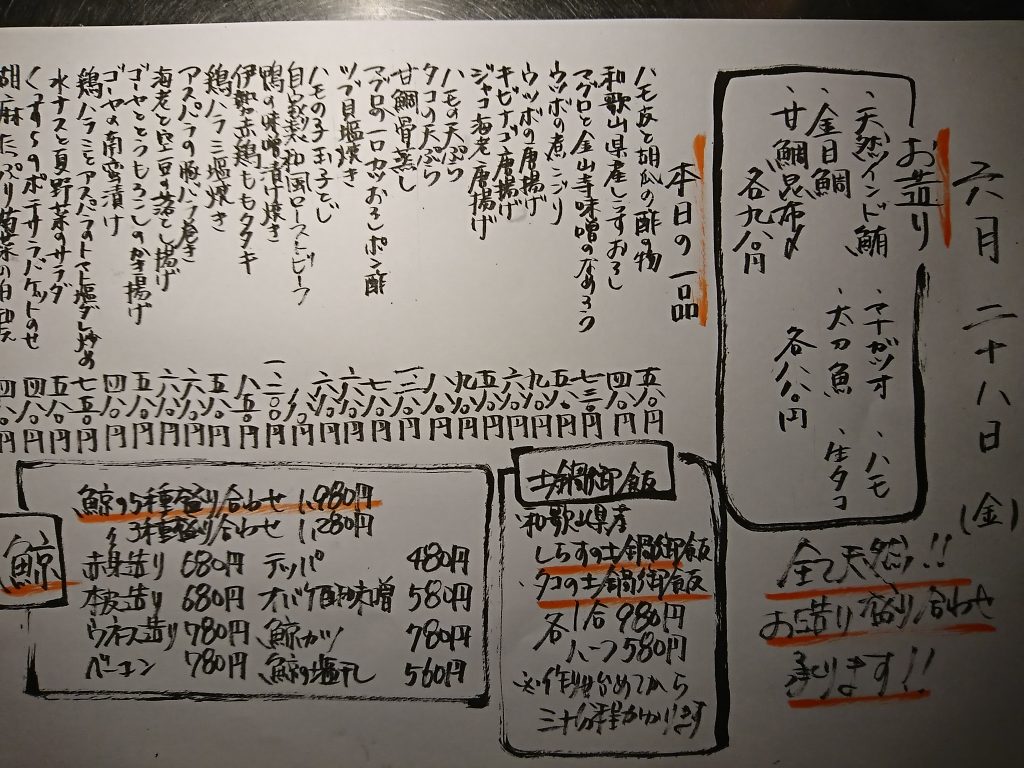 六月 二十八日 (金)
お造り
・天然ツインド鮪 ・マナガツオ ・ハモ
・金目鯛 ・太刀魚 ・生タコ
・甘鯛昆布〆 各八八〇円
各九八〇円
全て天然!!
お造り盛り合わせ
承ります!!
本日の一品
ハモ皮と胡瓜の酢の物 五八〇円
和歌山県産しらすおろし 四八〇円
マグロと金山寺味噌のなめろう 七三〇円
ウツボの煮こごり 五八〇円
ウツボの唐揚げ
キビナゴ唐揚げ
ジャコ海老唐揚げ
ハモの天ぷら
タコの天ぷら
甘鯛骨蒸し
マグロの一口カツおろしポン酢
ツブ貝塩焼き
ハモの子玉子とじ
自家製和風ローストビーフ
鴨の味噌漬け焼き
伊勢赤鶏ももタタキ 八五〇円
鶏ハラミ塩焼き
アスパラの豚バラ巻き
海老と空豆の落とし揚げ
ゴーヤととうもろこしのかき揚げ 五八〇円
ゴーヤの南蛮漬け 四八〇円
鶏ハラミとアスパラのトマト塩ダレ炒め 七五〇円
水ナスと夏野菜のサラダ 五八〇円
くずし のポテサラバケットのせ 四八〇円
胡麻たっぷり菊菜の白和え 四八〇円
土鍋御飯
和歌山県産
しらすの土鍋御飯
タコの土鍋御飯
各1合 980円
ハーフ 580円
※作り始めてから
三十分程かかります
鯨
鯨の5種盛り合わせ 1,980円
〃 3種盛り合わせ 1,280円
赤身造り 680円 テッパ 480円
本皮造り 680円 オバケ酢味噌 580円
ウネス造り 780円 鯨カツ 780円
ベーコン 780円 鯨の塩干し 560円